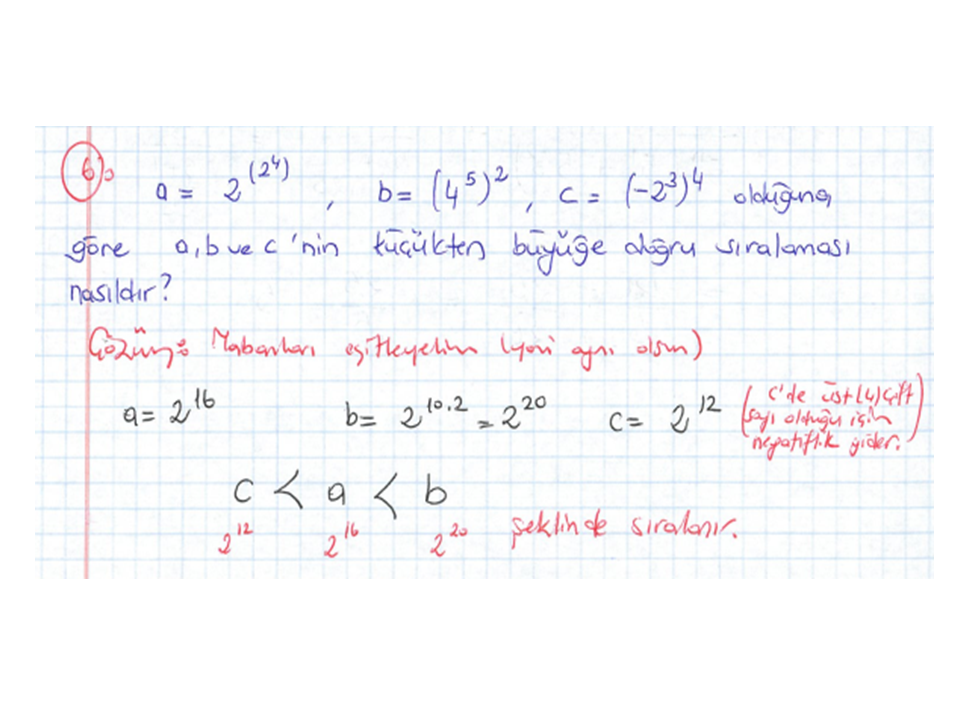 6)
a = 2^(2^4) , b = (4^5)^2 , c = (-2^3)^4 olduğuna
göre a, b ve c'nin küçükten büyüğe doğru sıralaması
nasıldır?
Çözüm: Tabanları eşitleyelim (yani aynı olsun)
a = 2^16 b = 2^10.2 = 2^20 c = 2^12 (c'de üst (4) çift
sayı olduğu için
negatiflik gider.)
c < a < b
2^12 2^16 2^20 şeklinde sıralanır.